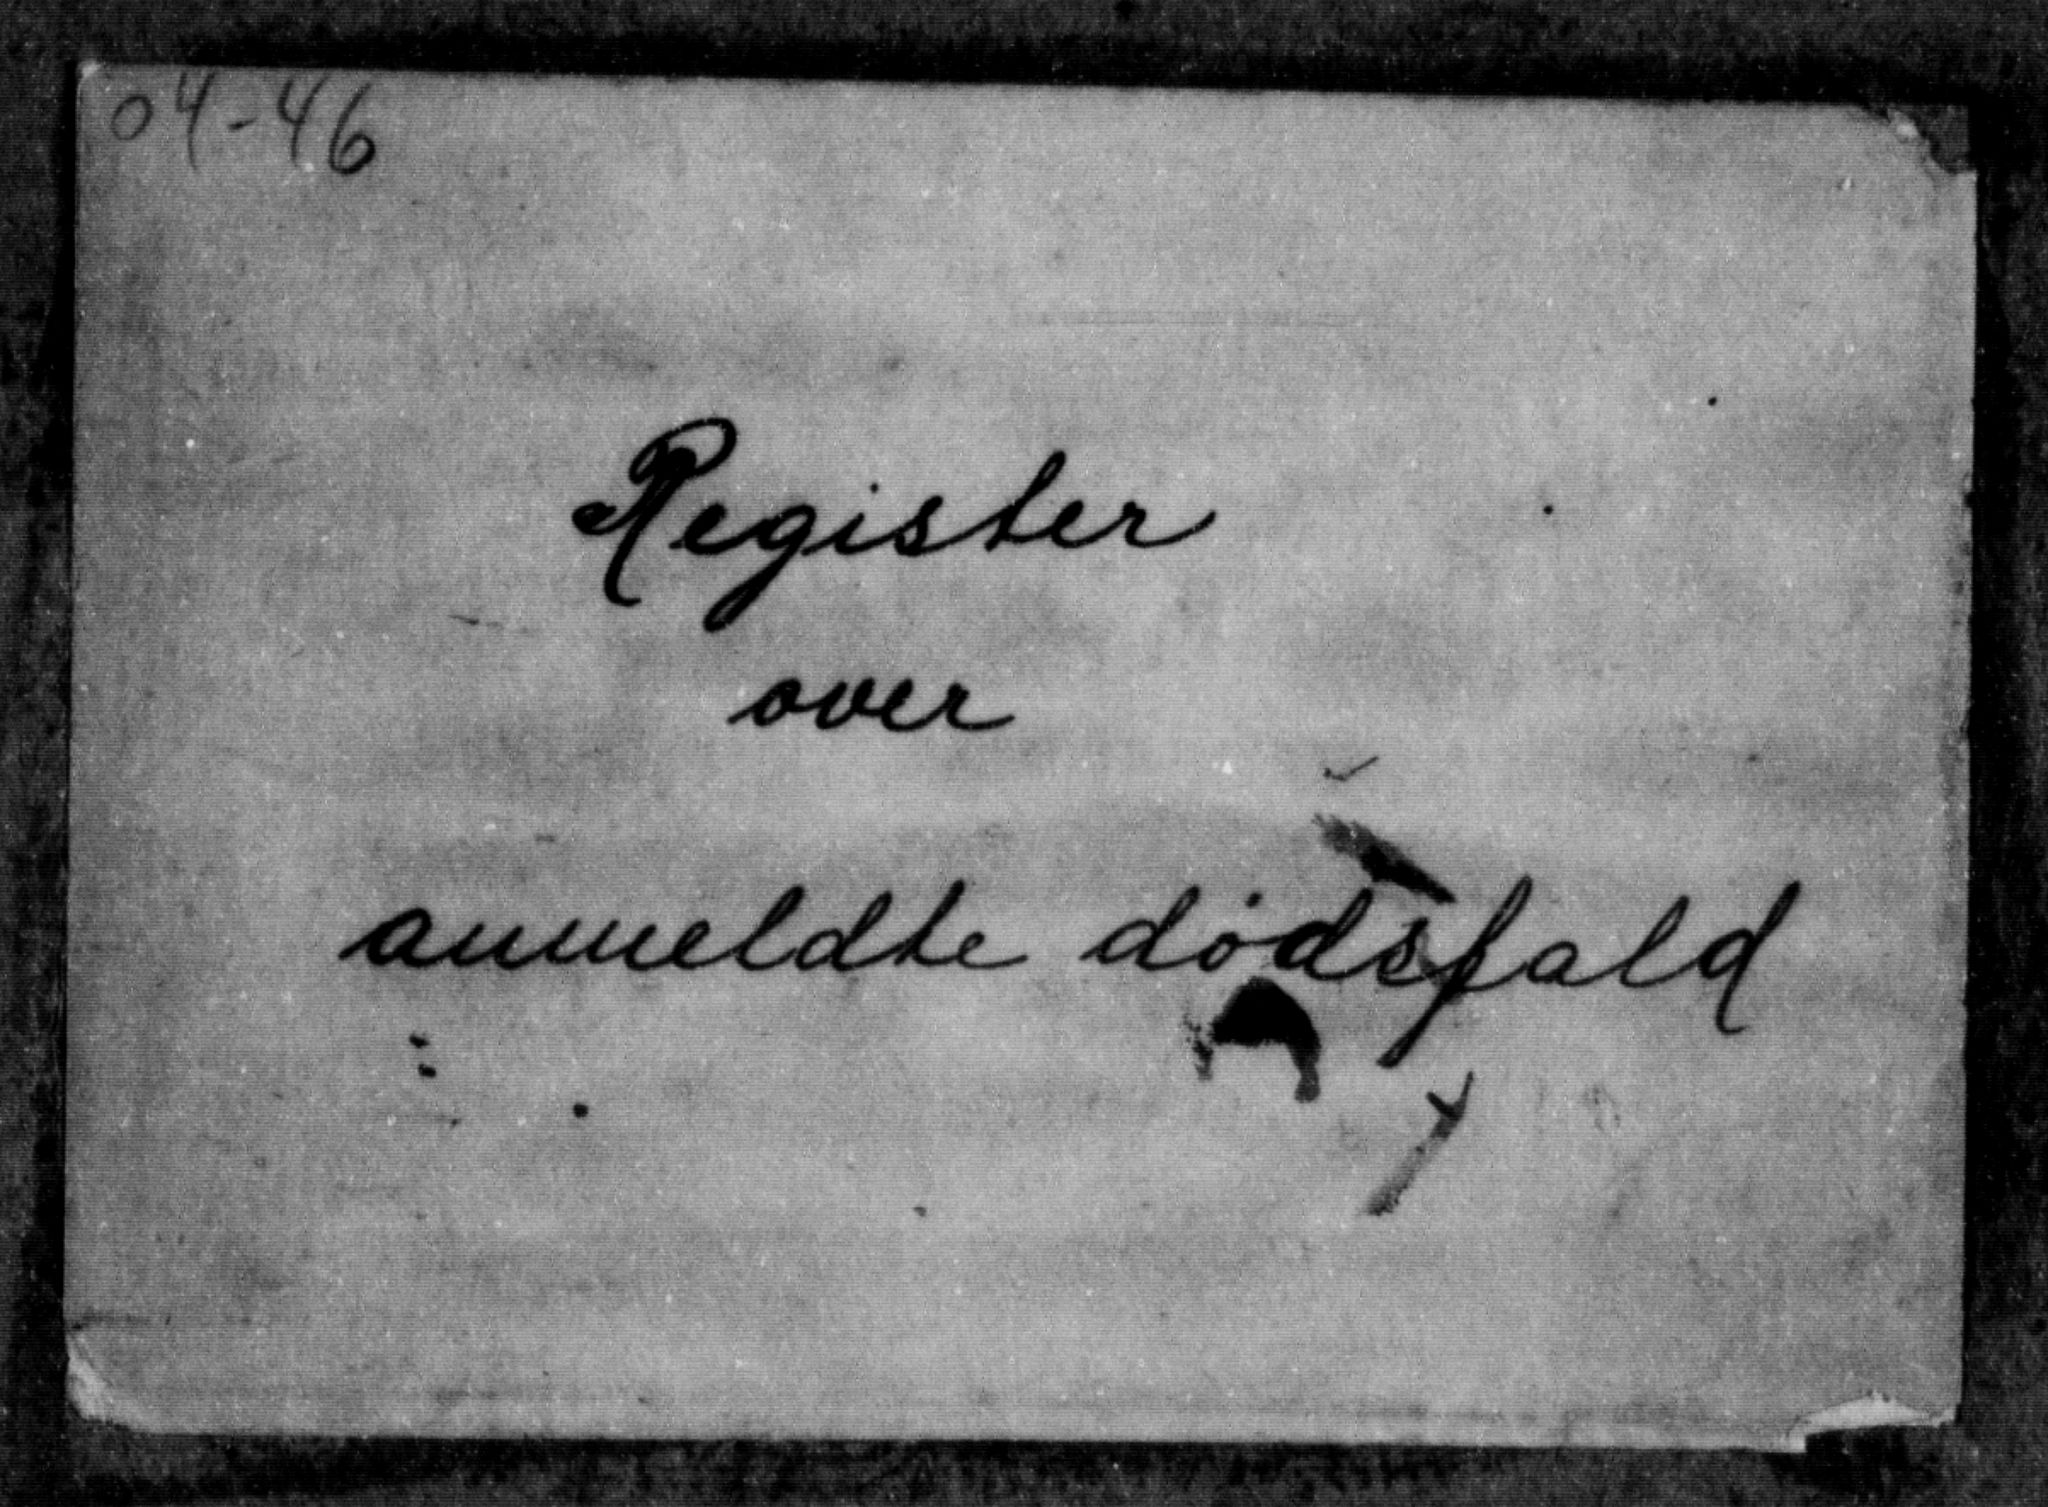 04-46
Register
over
anmeldte dødsfald